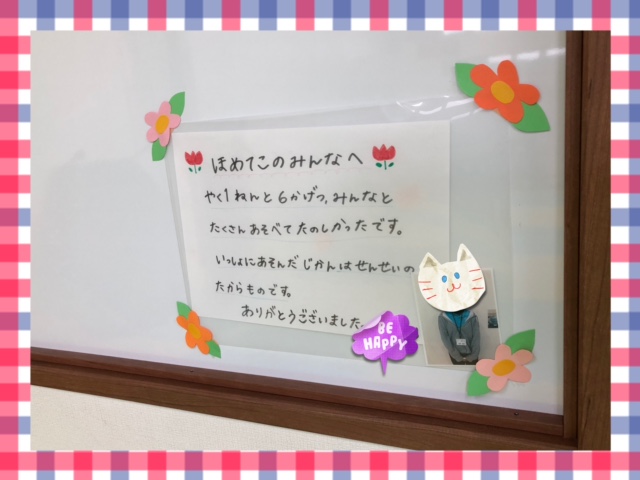 ほめてこのみんなへ
やく1ねんと6かげつ、みんなと
たくさんあそべてたのしかったです。
いっしょにあそんだじかんはせんせいの
たからものです。
ありがとうございました。
BE
HAPPY